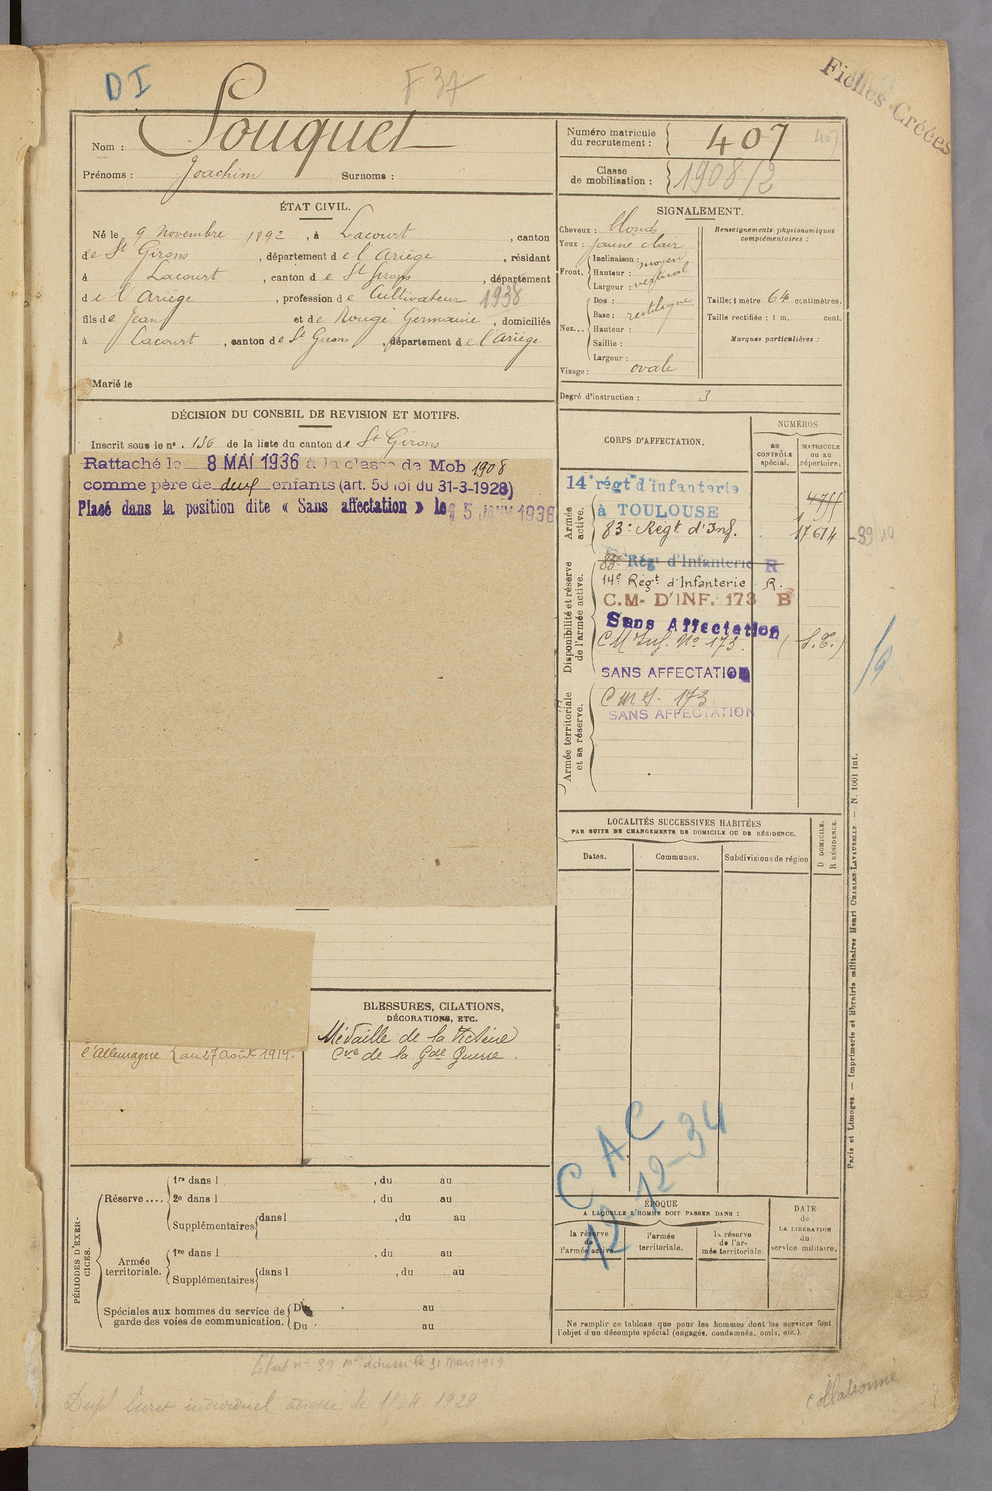 DI
F 37
Fiches Créées
Nom : Souquet
Prénoms : Joachim Surnoms :
Numéro matricule du recrutement : 407
407
Classe de mobilisation : 1908/2
ÉTAT CIVIL.
Né le 9 Novembre 1892, à Lacourt, canton
de St Girons, département de l'Ariège, résidant
à Lacourt, canton de St Girons, département
de l'Ariège, profession de Cultivateur 1938
fils de Jean et de Rougé Germaine, domiciliés
à Lacourt, canton de St Girons, département de l'Ariège
Marié le
SIGNALEMENT.
Cheveux : blonds
Yeux : jaune clair
Front. Inclinaison : moyen
Hauteur : vertical
Largeur :
Nez... Dos :
Base : rectiligne
Hauteur :
Saillie :
Largeur :
Visage : ovale
Renseignements physionomiques complémentaires :
Taille : 1 mètre 64 centimètres.
Taille rectifiée : 1 m. cent.
Marques particulières :
Degré d'instruction : 3
DÉCISION DU CONSEIL DE REVISION ET MOTIFS.
Inscrit sous le n° 136 de la liste du canton de St Girons
Rattaché le 8 MAI 1936 à la classe de Mob 1908
comme père de deux enfants (art. 58 loi du 31-3-1928)
Placé dans la position dite « Sans affectation » le 15 JANV 1938
CORPS D'AFFECTATION.
NUMÉROS
au CONTRÔLE spécial.
MATRICULE ou au répertoire.
Armée active.
14e régt d'infanterie
à TOULOUSE
83e Régt d'Inf. 17614
Disponibilité et réserve de l'armée active.
83e Régt d'Infanterie R
14e Régt d'Infanterie R.
C.M- D'INF. 173 B
Sans Affectation
CM Inf. No 173. (S.T.)
SANS AFFECTATION
Armée territoriale et sa réserve.
C M I. 173
SANS AFFECTATION
LOCALITÉS SUCCESSIVES HABITÉES
PAR SUITE DE CHANGEMENTS DE DOMICILE OU DE RÉSIDENCE.
Dates.
Communes.
Subdivisions de région
D DOMICILE.
R RÉSIDENCE.
BLESSURES, CITATIONS,
DÉCORATIONS, ETC.
Médaille de la Victoire
Cve de la Gde Guerre.
l'Allemagne au 27 août 1914.
CAC
12-12-34
PÉRIODES D'EXERCICES.
Réserve.... 1re dans l , du au
2e dans l , du au
Supplémentaires dans l , du au
Armée territoriale. 1re dans l , du au
Supplémentaires dans l , du au
Spéciales aux hommes du service de garde des voies de communication. Du au
Du au
ÉPOQUE
A LAQUELLE L'HOMME DOIT PASSER DANS :
la réserve de l'armée active.
l'armée territoriale.
la réserve de l'armée territoriale.
DATE
de
LA LIBÉRATION
du
service militaire.
Ne remplir ce tableau que pour les hommes dont les services font
l'objet d'un décompte spécial (engagés, condamnés, omis, etc.).
Paris et Limoges. — Imprimerie et librairie militaires Henri CHARLES-LAVAUZELLE — N. 1001 int.
Etat n° 39 mel adressé le 31 mars 1919
Dupl livret individuel adressé le 11-4-1929
collationné